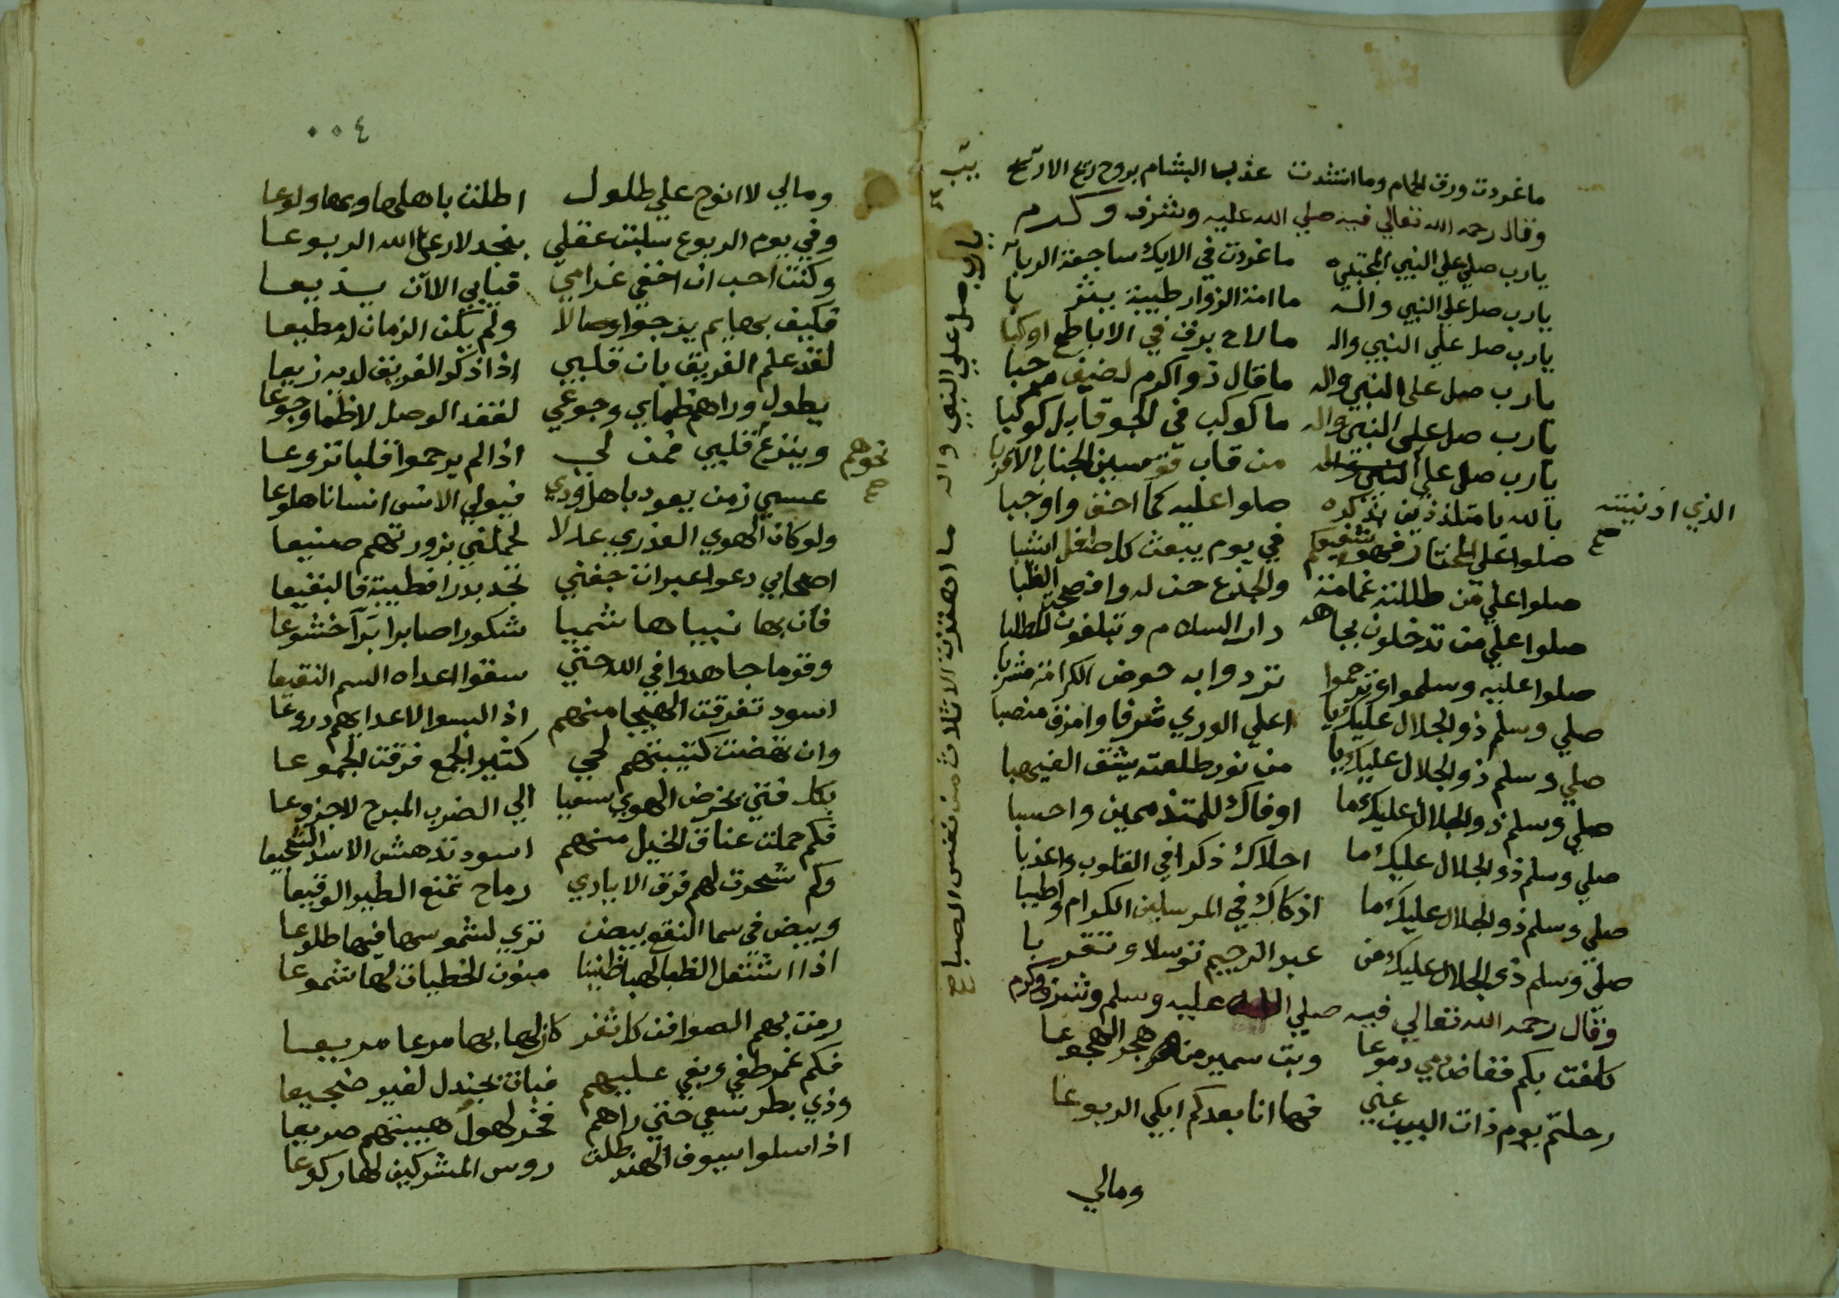 ما غردت ورق الحمام وما انثنت عذب البشام بروح ريح الاريح
وقال رحمه الله تعالي فيه صلي الله عليه وشرف وكرم
يارب صلي علي النبي المجتبي ما غردت في الايك ساجعة الربا
يارب صل علي النبي واله ما امت الزوار طيبة يثربا
يارب صل علي النبي واله ما لاح برق في الاباطح اوكبا
يارب صل علي النبي واله ما قال ذوا كرم لضيف مرحبا
يارب صل علي النبي واله ما كوكب في الجو قابل كوكبا
يارب صل علي النبي من قاب قوسين الجناب الاقربا
الذي ادنيته صح
بالله يا متلذذين بذكره صلوا عليه كما احق واوجبا
صلوا علي المختار فهو شفيعكم في يوم يبعث كل طفل اشيبا
صلوا علي من ظللته غمامة والجذع حن له وافصحت الظبا
صلوا علي من تدخلون بجاهه دار السلام وتبلغون المطلبا
صلوا عليه وسلموا وترحموا تردوا به حوض الكرامة مشربا
صلي وسلم ذو الجلال عليك يا اعلي الوري شرفا وامرق منصبا
صلي وسلم ذو الجلال عليك يا من نور طلعته يشق الغيهبا
صلي وسلم ذو الجلال عليك ما اوفاك للمتذممين واحسبا
صلي وسلم ذو الجلال عليك ما احلاك ذكرا في القلوب واعذبا
صلي وسلم ذو الجلال عليك ما ازكاك في المرسلين الكرام واطيبا
صلي وسلم ذي الجلال عليك من عبد الرحيم توسلاء تقربا
وقال رحمه الله تعالي فيه صلي الله عليه وسلم وشرف وكرم
كلفت بكم ففاض دمي دموعا وبت سمير من هجر الهجوعا
رحلتم يوم ذات البين عني فها انا بعدكم ابكي الربوعا
ومالي
يارب صل علي النبي واله ما اهتزت الاثلاث من نفس الصبا صح
٠٥٤
ومالي لا انوح علي طلول اطلت باهلها وبها ولوعا
وفي يوم الربوع سلبت عقلي بنجد لارعي الله الربوعا
وكنت احب ان اخفي غرامي فيابي الان يذيعا
فكيف بهايم يرجوا وصالا ولم يكن الزمان له مطيعا
لقد علم الفريق بان قلبي اذا ذكر الفريق لديه زيعا
يطول وراهم ظماي وجوعي لفقد الوصل لا ظما وجوعا
وينزع قلبي فمن لي اذا لم يرحموا قلبا نزوعا
نحوهم صح
عسي زمن يعود باهل ودي فيولي الانس انسانا هلوعا
ولو كان الهوي العذري عدلا لحملني بزورتهم صنيعا
اصحابي دعوا عبرات جفني تخد بدرا فطيبة فالبقيعا
فان بها نبيا هاشميا شكورا صابرا برا خشوعا
وقوما جاهدوا في الله حتي سقوا اعداه السم النقيعا
اسود تفرقت الهيجا منهم اذا البسوا لاعدايهم دروعا
وان نهضت كتيبتهم لحي كثير الجمع فرقت الجموعا
بكل فتي يخوض الهوي سعيا الي الضرب المبرح لا جزوعا
فكم حملت عتاق الخيل منهم اسود تدهش الاسد الشجيعا
وكم شجرت لهم فرق الايادي رماح تمنع الطير الوقيعا
وبيض في سما النقع بيضت تري لشموسها فيها طلوعا
اذا اشتعل الظبا لهبا ظننا متون الخطيات لها شموعا
رمت بهم الصوافن كل ثغر كان لها بها مرعا مريعا
فكم غمر طغي وبغي عليهم فبات بجندل لفيو ضجيعا
وذي بطر سعي حتي راهم فخر لهول هيبتهم صريعا
اذا سلوا سيوف الهند ظلت روس المشركين لها ركوعا